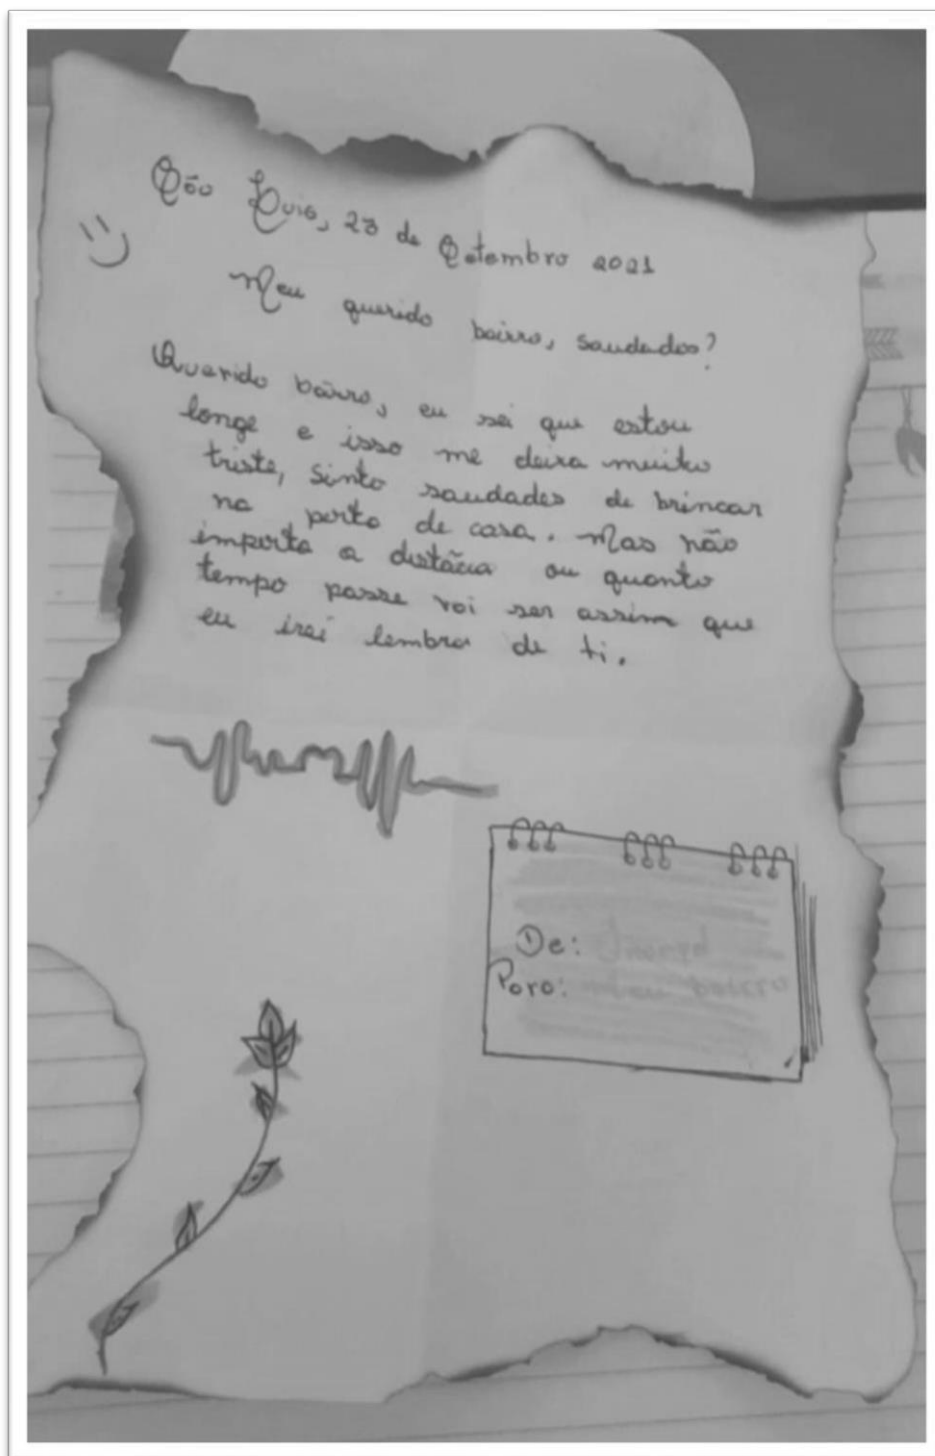 São Luis, 23 de Setembro 2021
Meu querido bairro, saudades?
Querido bairro, eu sei que estou
longe e isso me deixa muito
triste, sinto saudades de brincar
na porta de casa. Mas não
importa a distãcia ou quanto
tempo passe vai ser assim que
eu irei lembra de ti.
De:
Para: bairro